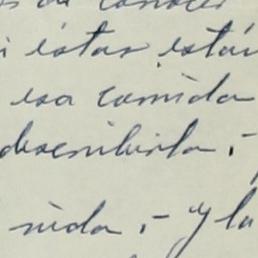 conocer
i éstas están
esa comida
describirla, -
nida, - y la